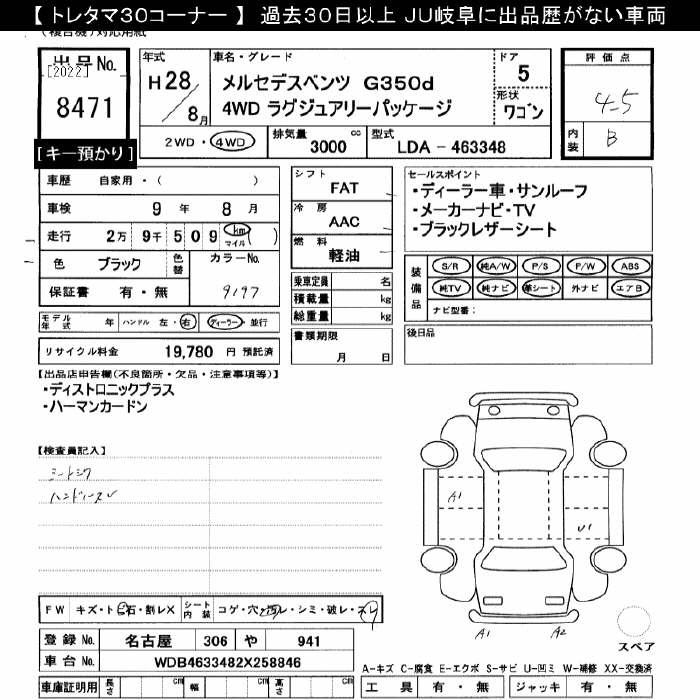 【 トレタマ30コーナー 】 過去30日以上 JU岐阜に出品歴がない車両
出品No.
[2022]
8471
[キー預かり]
年式
H28
8月
車名・グレード
メルセデスベンツ G350d
4WD ラグジュアリーパッケージ
ドア
5
形状
ワゴン
2WD・4WD
排気量 3000 cc
型式 LDA - 463348
評価点
4.5
内装 B
車歴 自家用・( )
車検 9 年 8 月
走行 2万 9千 5 0 9 km マイル ( )
色 ブラック 色替 カラーNo. 9197
保証書 有・無
シフト FAT
冷房 AAC
燃料 軽油
乗車定員 名
積載量 kg
総重量 kg
書類期限
月 日
セールスポイント
・ディーラー車・サンルーフ
・メーカーナビ・TV
・ブラックレザーシート
装備品
S/R 純A/W P/S P/W ABS
純TV 純ナビ 革シート 外ナビ エアB
ナビ型番:
後日品
モデル年式 年 ハンドル 左・右 ディーラー・並行
リサイクル料金 19,780 円 預託済
【出品店申告欄(不良箇所・欠品・注意事項等)】
・ディストロニックプラス
・ハーマンカードン
【検査員記入】
シートシワ
A1
U1
A1 A2
スペア
FW キズ・ト石・割レX シート内装 コゲ・穴・汚レ・シミ・破レ・スレ
登録No. 名古屋 306 や 941
車台No. WDB4633482X258846
車庫証明用 長さ cm 幅 cm 高さ cm
A-キズ C-腐食 E-エクボ S-サビ U-凹ミ W-補修 XX-交換済
工具 有・無 ジャッキ 有・無